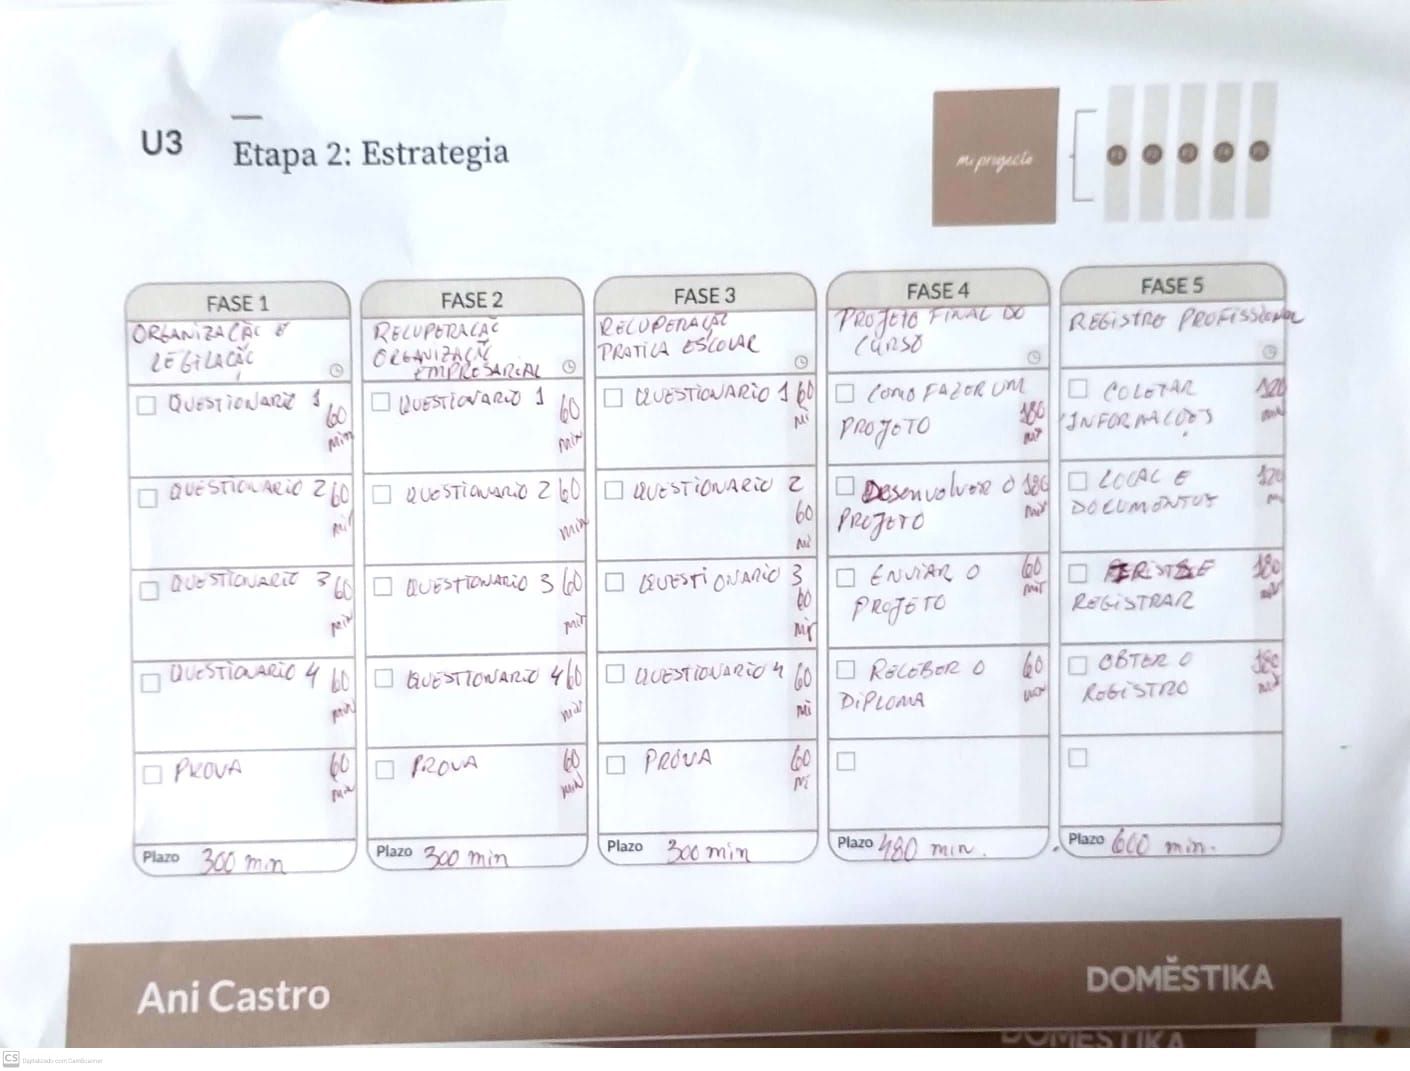 U3
Etapa 2: Estrategia
mi proyecto
F1 F2 F3 F4 F5
FASE 1
ORGANIZAÇÃO E
LEGILAÇÃO
QUESTIONARIO 1 60
min
QUESTIONARIO 2 60
min
QUESTIONARIO 3 60
min
QUESTIONARIO 4 60
min
PROVA 60
min
Plazo 300 min
FASE 2
RECUPERAÇÃO
ORGANIZAÇÃO
EMPRESARIAL
QUESTIONARIO 1 60
min
QUESTIONARIO 2 60
min
QUESTIONARIO 3 60
min
QUESTIONARIO 4 60
min
PROVA 60
min
Plazo 300 min
FASE 3
RECUPERAÇÃO
PRATICA ESCOLAR
QUESTIONARIO 1 60
mi
QUESTIONARIO 2
60
mi
QUESTIONARIO 3
60
min
QUESTIONARIO 4 60
mi
PROVA 60
mi
Plazo 300 min
FASE 4
PROJETO FINAL DO
CURSO
COMO FAZER UM
PROJETO 180
min
Desenvolver O 180
PROJETO min
ENVIAR O 60
PROJETO min
RECEBER O 60
DIPLOMA min
Plazo 480 min.
FASE 5
REGISTRO PROFISSIONAL
COLETAR 120
INFORMAÇÕES min
LOCAL E 120
DOCUMENTOS m
REGISTRAR 180
min
OBTER O 180
REGISTRO min
Plazo 600 min.
Ani Castro
DOMESTIKA
DOMESTIKA
CS Digitalizado com CamScanner